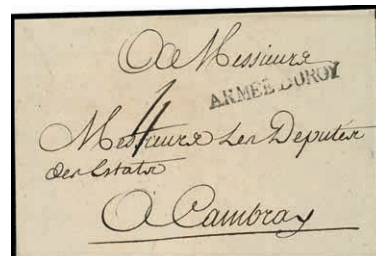 A Messieurs
ARMÉE DU ROY
4
Messieurs Les Deputés
des Estats
A Cambray